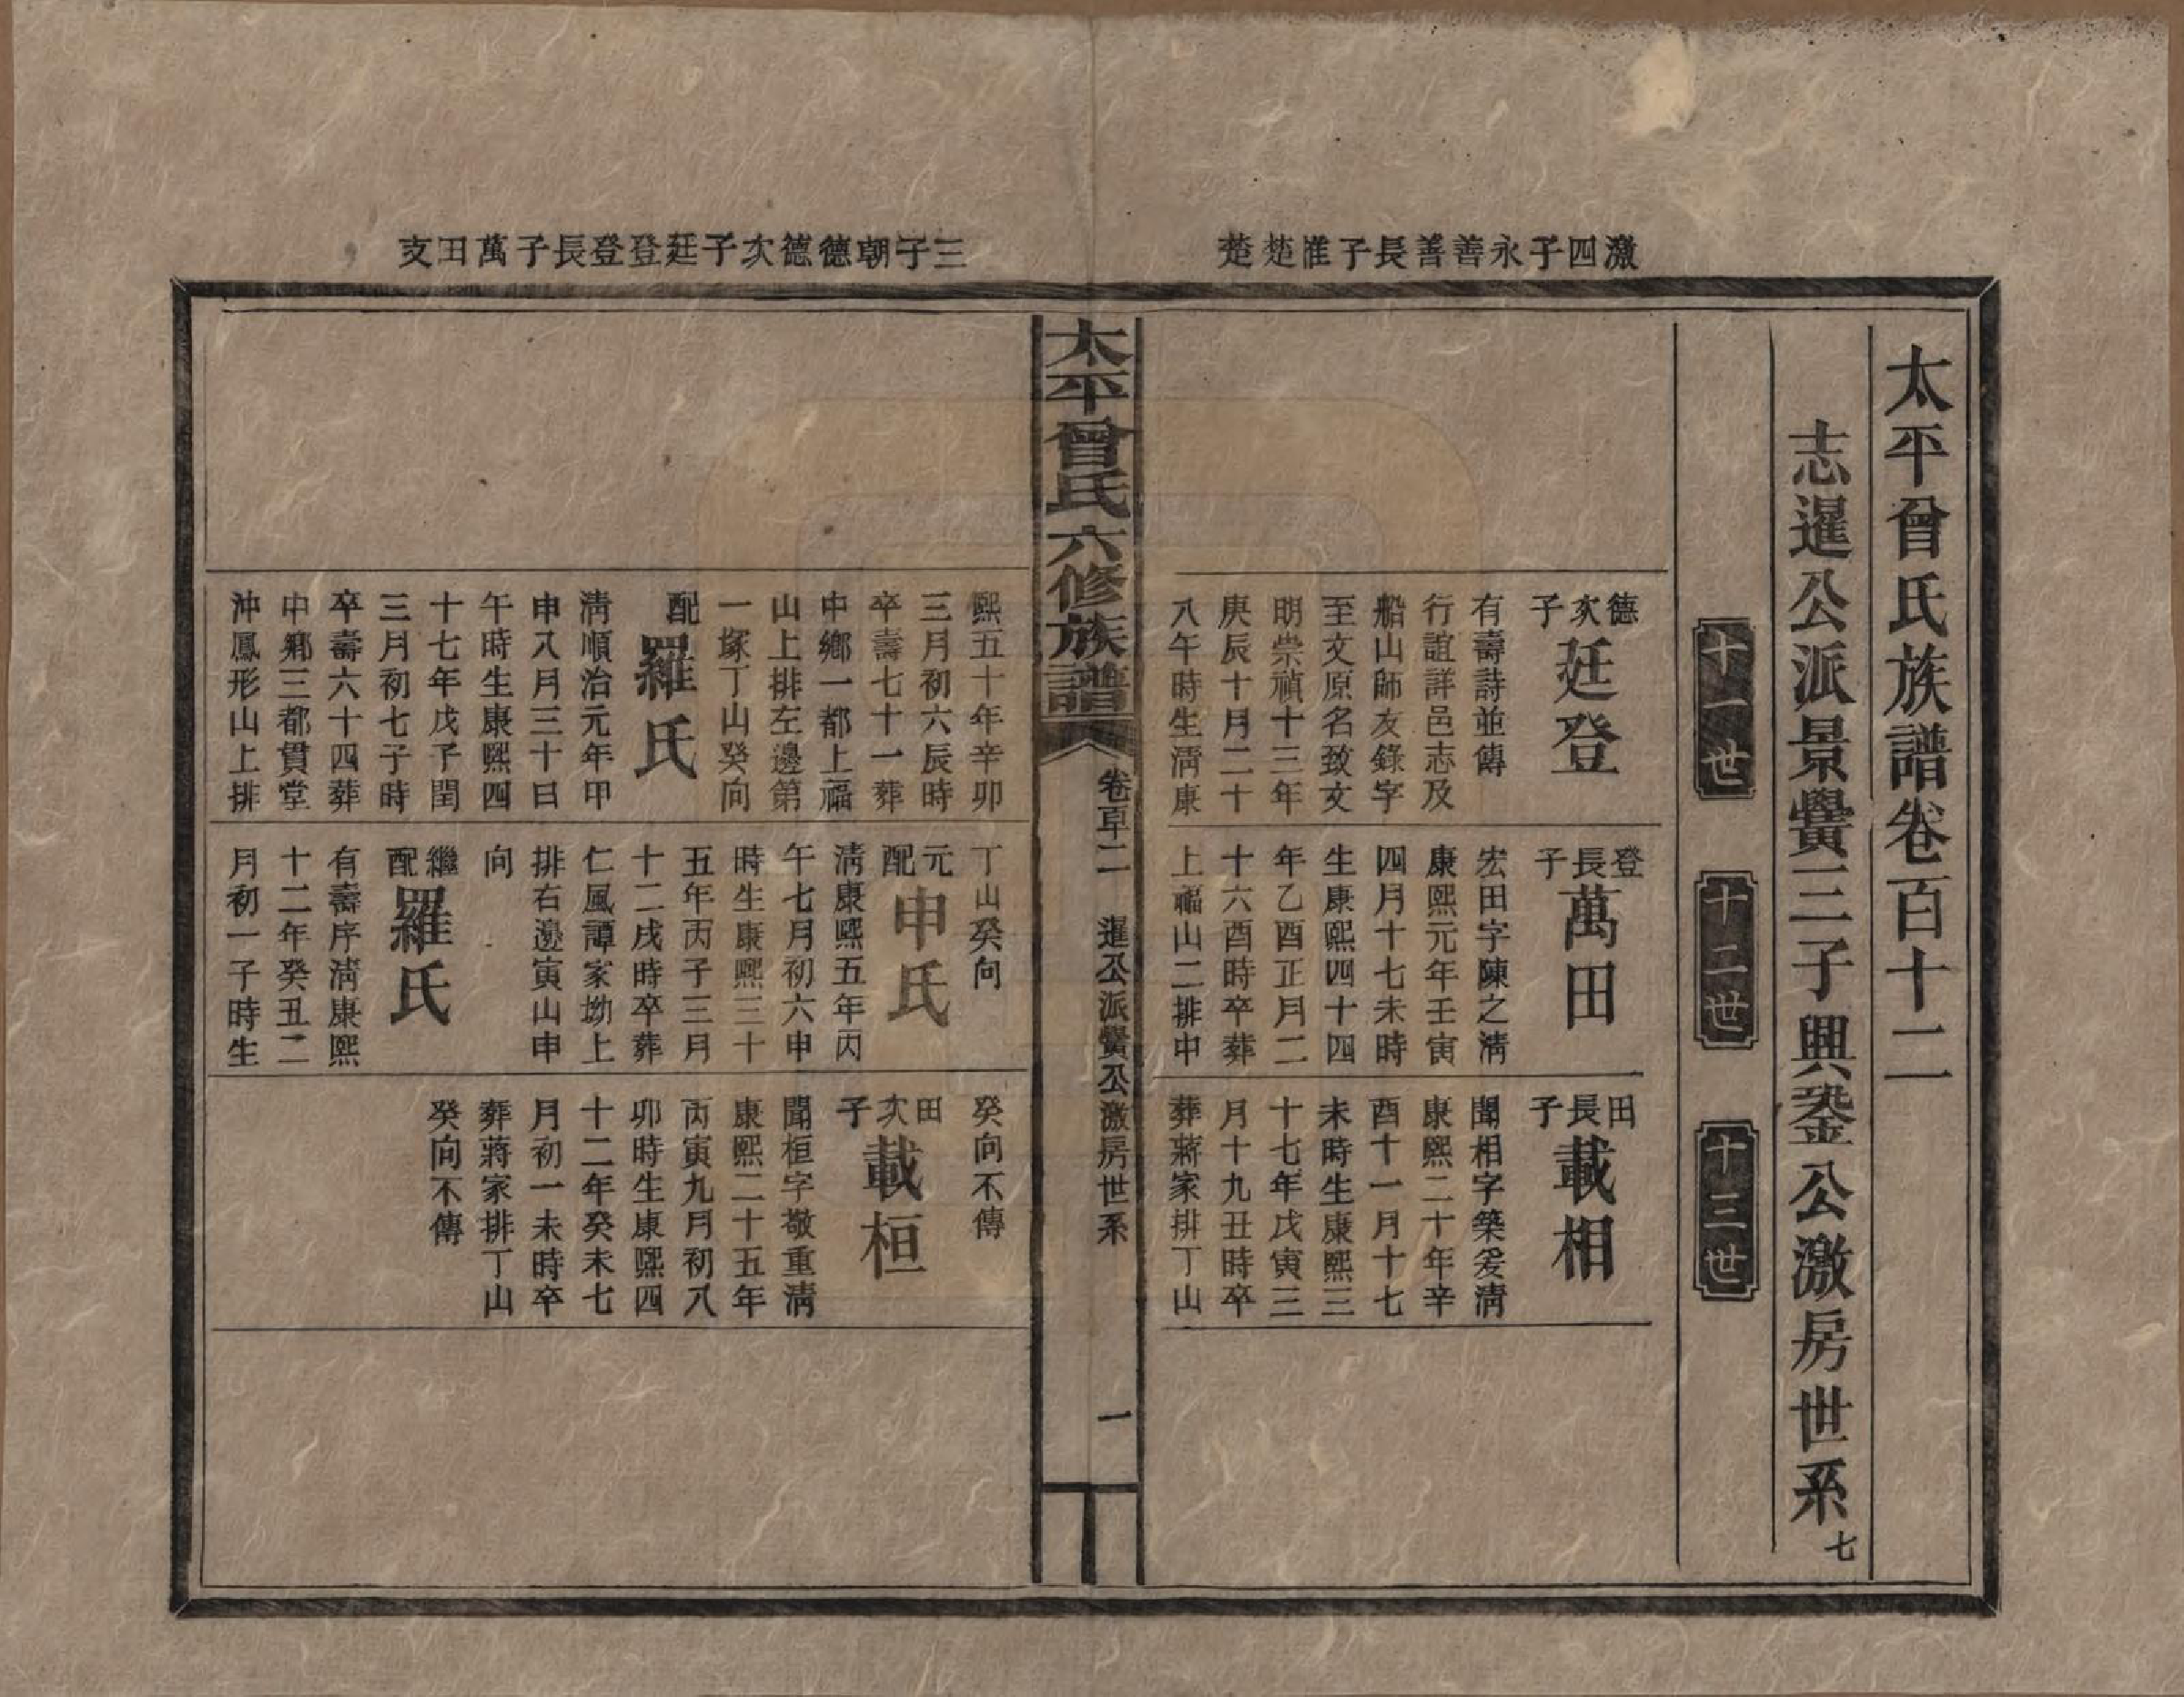 太平曾氏族譜卷百十二
志暹公派景黌三子興鋆公激房世系七
十一世
十二世
十三世
激四子永善善長子惟楚楚
三子朝德德次子廷登登長子萬田支
德次子
廷登
有壽詩並傳
行誼詳邑志及
船山師友錄字
至文原名致文
明崇禎十三年
庚辰十月二十
八午時生淸康
登長子
萬田
宏田字陳之淸
康熙元年壬寅
四月十七未時
生康熙四十四
年乙酉正月二
十六酉時卒葬
上福山二排中
田長子
載相
聞相字築爰淸
康熙二十年辛
酉十一月十七
未時生康熙三
十七年戊寅三
月十九丑時卒
葬蔣家排丁山
太平曾氏六修族譜
卷百十二
暹公派黌公激房世系
一
熙五十年辛卯
三月初六辰時
卒壽七十一葬
中鄉一都上福
山上排左邊第
一塚丁山癸向
配
羅氏
淸順治元年甲
申八月三十日
午時生康熙四
十七年戊子閏
三月初七子時
卒壽六十四葬
中鄉三都貫堂
沖鳳形山上排
丁山癸向
元配
申氏
淸康熙五年丙
午七月初六申
時生康熙三十
五年丙子三月
十二戌時卒葬
仁風譚家坳上
排右邊寅山申
向
繼配
羅氏
有壽序淸康熙
十二年癸丑二
月初一子時生
癸向不傳
田次子
載桓
聞桓字敬重淸
康熙二十五年
丙寅九月初八
卯時生康熙四
十二年癸未七
月初一未時卒
葬蔣家排丁山
癸向不傳